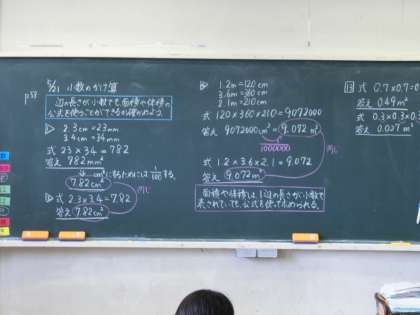 5/31 小数のかけ算
p58
辺の長さが小数でも面積や体積の
公式を使うことができるか確かめよう。
2.3cm=23mm
3.4cm=34mm
式 23×34=782
答え 782mm²
cm²になるためには 1/100 する。
7.82cm²
同じ
式 2.3×3.4=7.82
答え 7.82cm²
1.2m=120cm
3.6m=360cm
2.1m=210cm
式 120×360×210=9072000
答え 9072000cm³=9.072m³
1000000
同じ
式 1.2×3.6×2.1=9.072
答え 9.072m³
面積や体積は、辺の長さが小数で
表されていても、公式を使って求められる。
13 式 0.7×0.7=0.
答え 0.49m²
式 0.3×0.3×
答え 0.027m³